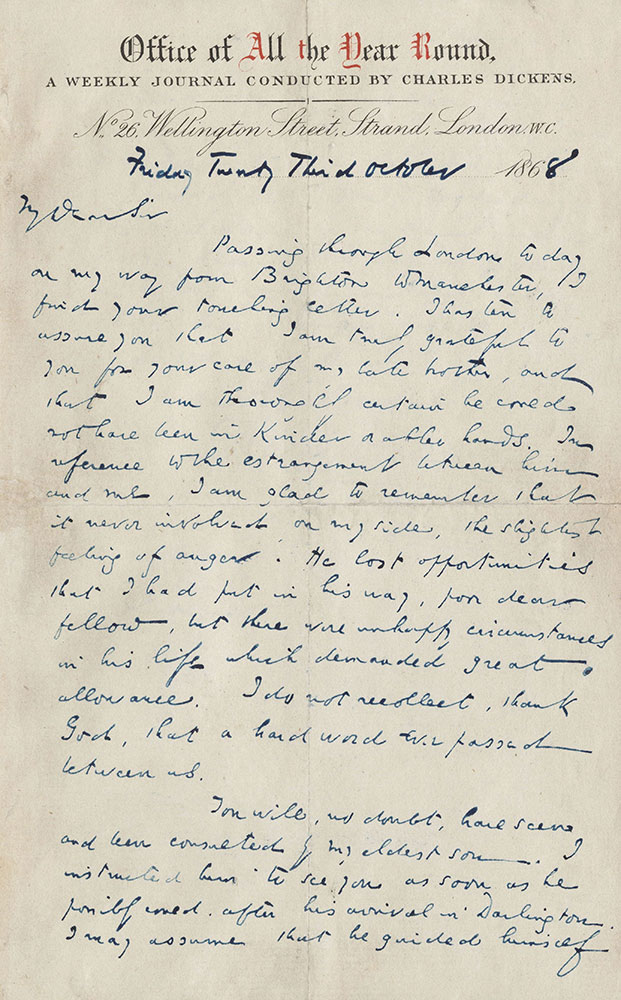 Office of All the Year Round,
A WEEKLY JOURNAL CONDUCTED BY CHARLES DICKENS.
No. 26, Wellington Street, Strand, London. W.C.
Friday Twenty Third October 1868
My Dear Sir
Passing through London to day
on my way from Brighton to Manchester, I
find your touching letter. I hasten to
assure you that I am truly grateful to
you for your care of my late brother, and
that I am thoroughly certain he could
not have been in Kinder or abler hands. In
reference to the estrangement between him
and me, I am glad to remember that
it never involved, on my side, the slightest
feeling of anger. He lost opportunities
that I had put in his way, poor dear
fellow, but there were unhappy circumstances
in his life which demanded great
allowance. I do not recollect, thank
God, that a hard word ever passed
between us.
You will, no doubt, have seen
and been consulted by my eldest son. I
instructed him to see you as soon as he
possibly could after his arrival in Darlington.
I may assume that he guided himself